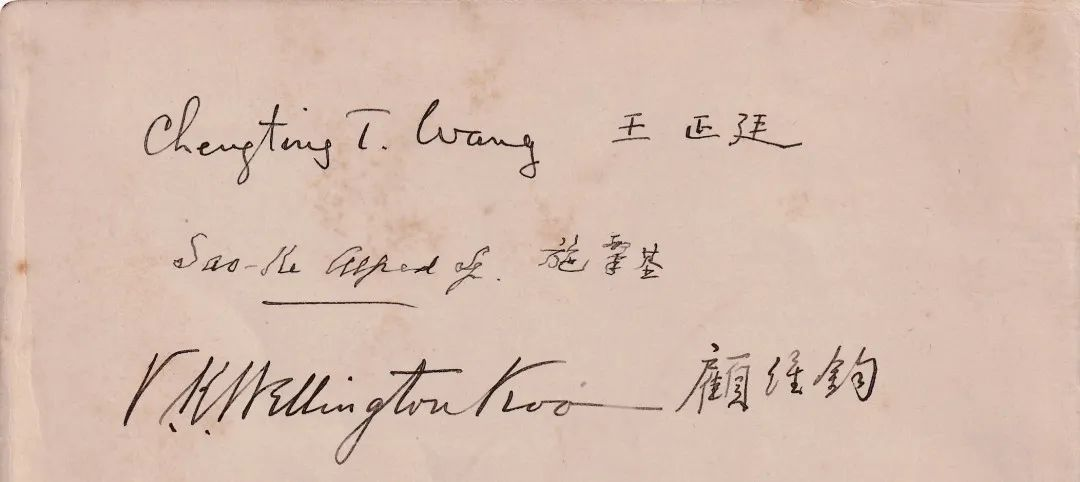 Chengting T. Wang 王正廷
Sao-Ke Alfred Sze. 施肇基
V. K. Wellington Koo 顧維鈞